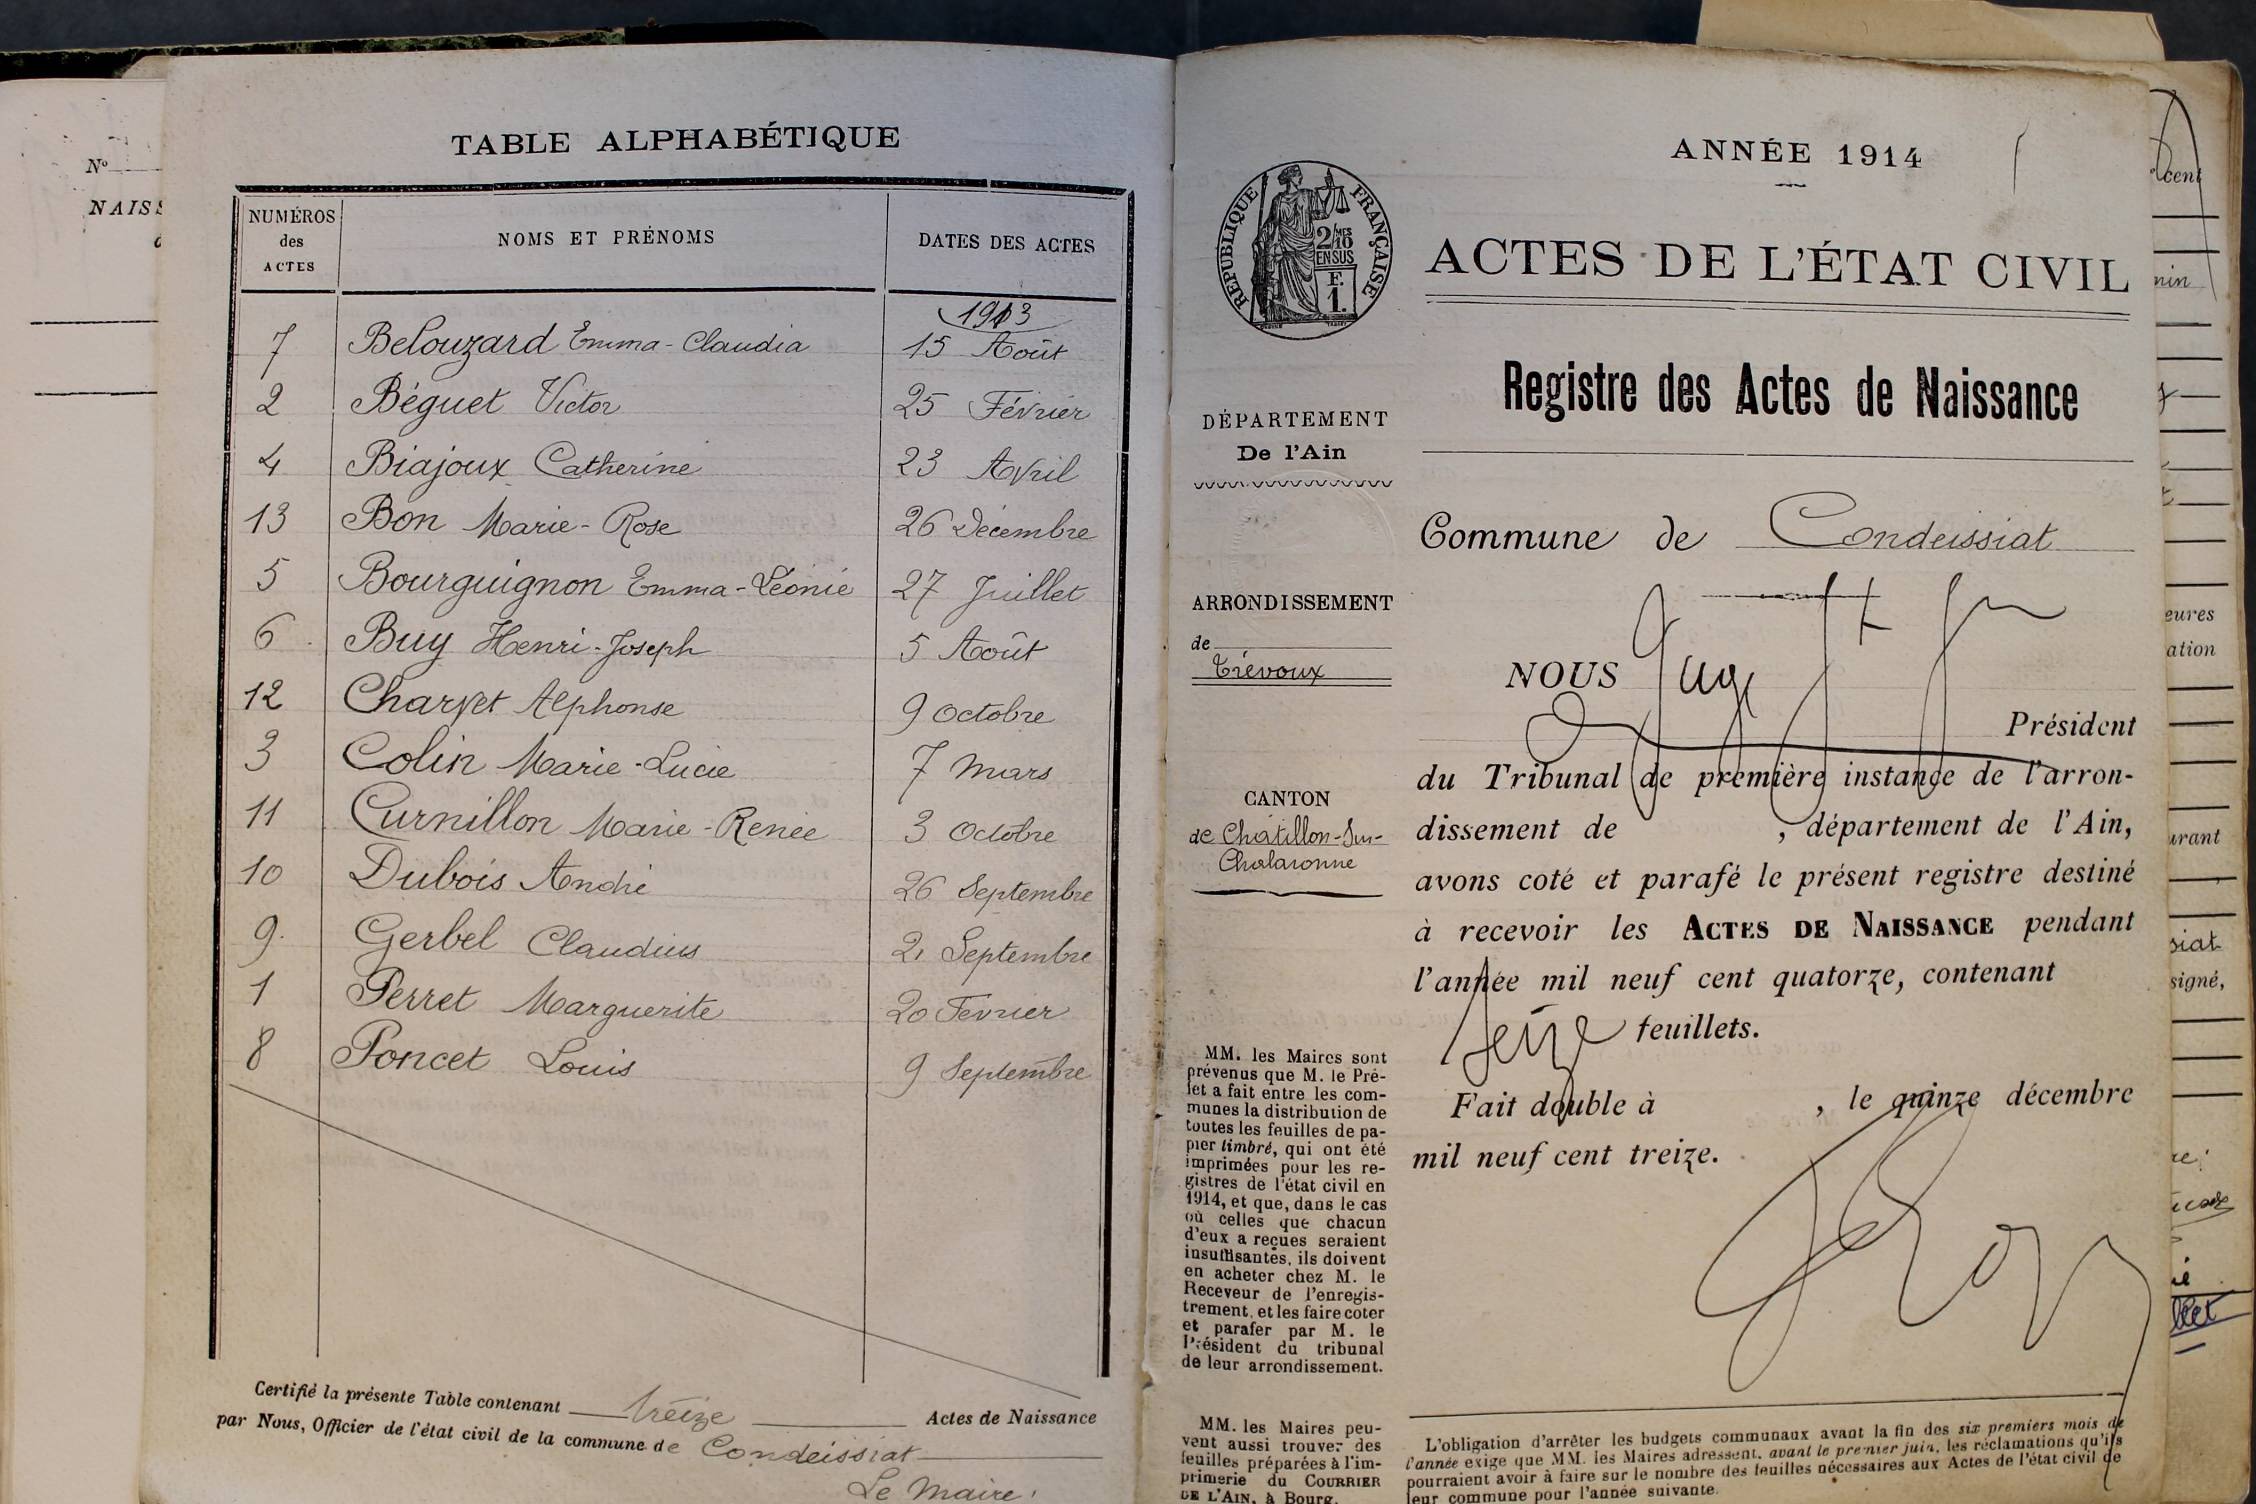 N°
NAISS
TABLE ALPHABÉTIQUE
NUMÉROS des ACTES
NOMS ET PRÉNOMS
DATES DES ACTES
1913
7 Belouzard Emma-Claudia 15 Août
2 Béguet Victor 25 Février
4 Biajoux Catherine 23 Avril
13 Bon Marie-Rose 26 Décembre
5 Bourguignon Emma-Léonie 27 Juillet
6 Buy Henri-Joseph 5 Août
12 Charvet Alphonse 9 Octobre
3 Colin Marie-Lucie 7 Mars
11 Curnillon Marie-Renée 3 Octobre
10 Dubois André 26 Septembre
9 Gerbel Claudius 21 Septembre
1 Perret Marguerite 20 Février
8 Poncet Louis 9 Septembre
Certifié la présente Table contenant treize Actes de Naissance
par Nous, Officier de l'état civil de la commune de Condeissiat
Le Maire,
ANNÉE 1914
RÉPUBLIQUE FRANÇAISE
2/10 MES
EN SUS
F.
1.
ACTES DE L'ÉTAT CIVIL
Registre des Actes de Naissance
DÉPARTEMENT
De l'Ain
ARRONDISSEMENT
de
Trévoux
CANTON
de Châtillon-Sur-
Chalaronne
MM. les Maires sont
prévenus que M. le Pré-
fet a fait entre les com-
munes la distribution de
toutes les feuilles de pa-
pier timbré, qui ont été
imprimées pour les re-
gistres de l'état civil en
1914, et que, dans le cas
où celles que chacun
d'eux a reçues seraient
insuffisantes, ils doivent
en acheter chez M. le
Receveur de l'enregis-
trement, et les faire coter
et parafer par M. le
Président du tribunal
de leur arrondissement.
MM. les Maires peu-
vent aussi trouver des
feuilles préparées à l'im-
primerie du COURRIER
DE L'AIN, à Bourg.
Commune de Condeissiat
NOUS Juge
Président
du Tribunal de première instance de l'arron-
dissement de , département de l'Ain,
avons coté et parafé le présent registre destiné
à recevoir les ACTES DE NAISSANCE pendant
l'année mil neuf cent quatorze, contenant
seize feuillets.
Fait double à , le quinze décembre
mil neuf cent treize.
L'obligation d'arrêter les budgets communaux avant la fin des six premiers mois de
l'année exige que MM. les Maires adressent, avant le premier juin, les réclamations qu'ils
pourraient avoir à faire sur le nombre des feuilles nécessaires aux Actes de l'état civil de
leur commune pour l'année suivante.
cent
min
eures
ation
urant
siat
signé,